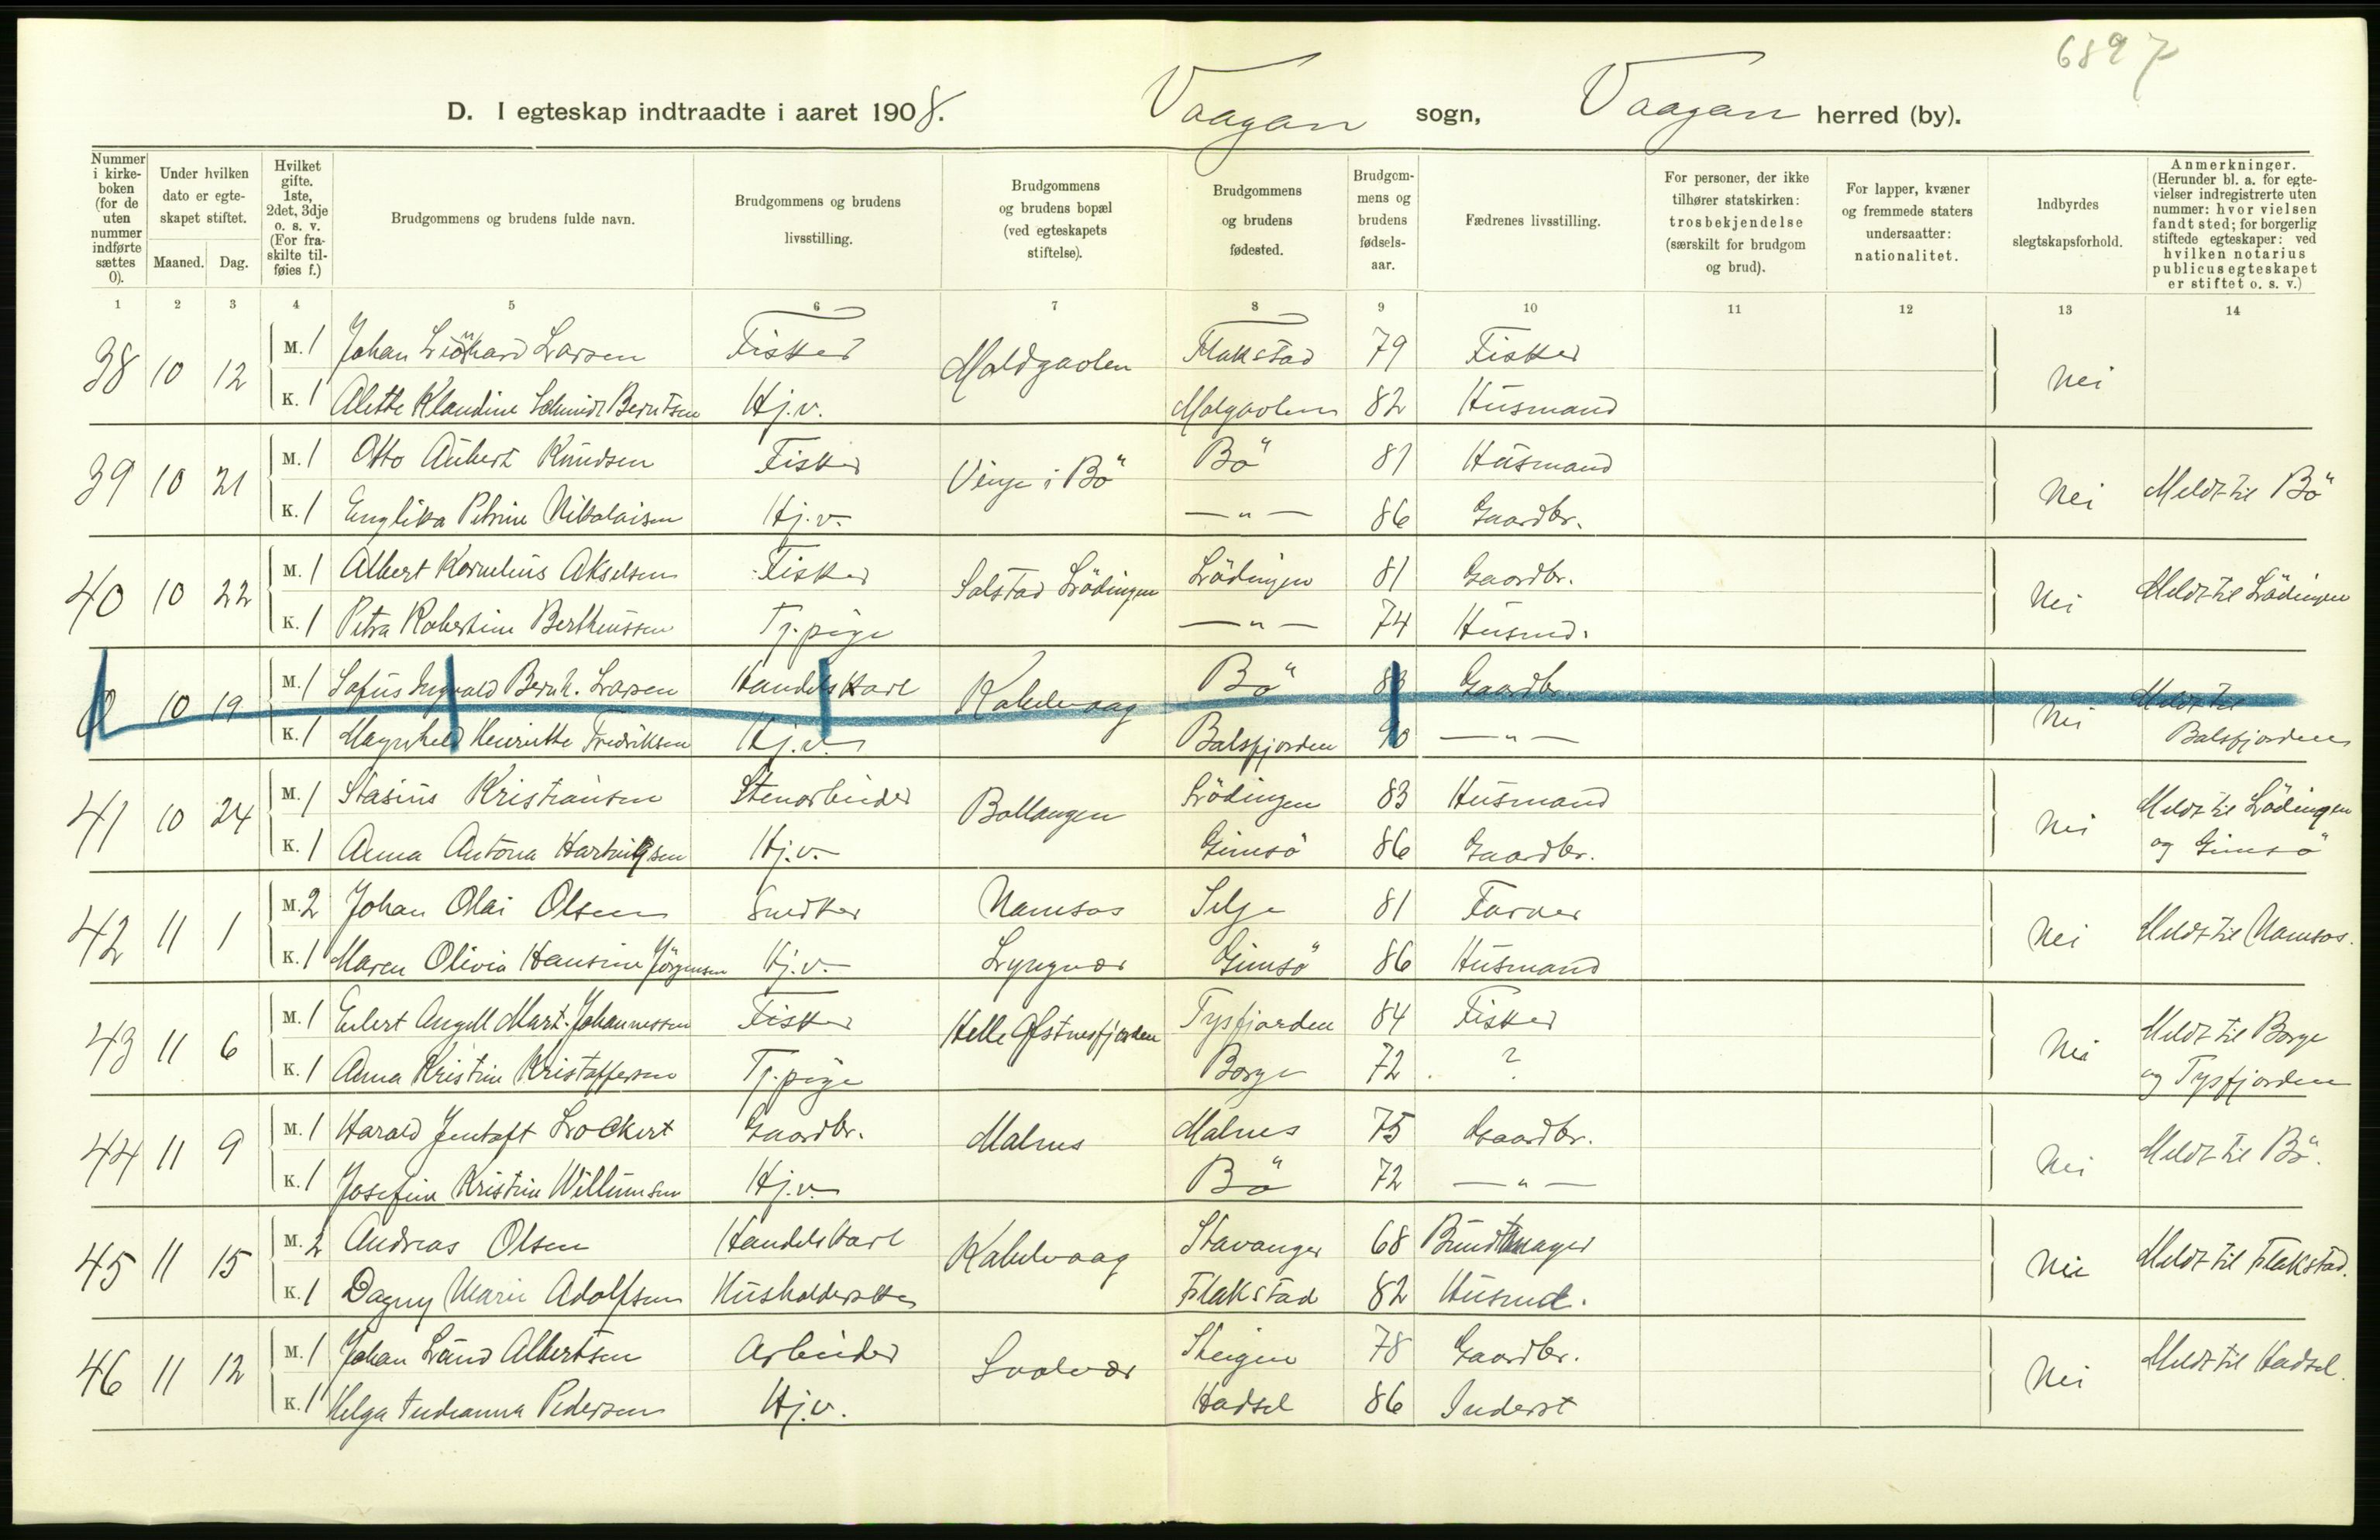 6897
D. I egteskap indtraadte i aaret 1908. Vaagan sogn, Vaagan herred (by).
Nummer i kirkeboken (for de uten nummer indførte sættes 0).
Under hvilken dato er egteskapet stiftet.
Maaned. Dag.
Hvilket gifte. 1ste, 2det, 3dje o. s. v. (For fraskilte tilføies f.)
Brudgommens og brudens fulde navn.
Brudgommens og brudens livsstilling.
Brudgommens og brudens bopæl (ved egteskapets stiftelse).
Brudgommens og brudens fødested.
Brudgommens og brudens fødselsaar.
Fædrenes livsstilling.
For personer, der ikke tilhører statskirken: trosbekjendelse (særskilt for brudgom og brud).
For lapper, kvæner og fremmede staters undersaatter: nationalitet.
Indbyrdes slegtskapsforhold.
Anmerkninger. (Herunder bl. a. for egtevielser indregistrerte uten nummer: hvor vielsen fandt sted; for borgerlig stiftede egteskaper: ved hvilken notarius publicus egteskapet er stiftet o. s. v.)
1 2 3 4 5 6 7 8 9 10 11 12 13 14
38 10 12 M. 1 Johan Leonhard Larsen Fisker Moldgaolen Flakstad 79 Fisker Nei
K. 1 Alette Klaudine Schmidt Berntsen Hj.v. Molgaolen 82 Husmand
39 10 21 M. 1 Otto Aubert Knudsen Fisker Vinje i Bö Bö 81 Husmand Nei Meldt til Bö
K. 1 Englika Petrine Nikolaisen Hj.v. —"— 86 Gaardbr.
40 10 22 M. 1 Albert Kornelius Akselsen Fisker Salstad Lödingen Lödingen 81 Gaardbr. Nei Meldt til Lödingen
K. 1 Petra Robertine Berthinssen Tj.pige —"— 74 Husmd.
0 10 19 M. 1 Sofus Ingvald Bernh. Larsen Handelskarl Kabelvaag Bö 83 Gaardbr. Nei Meldt til
K. 1 Magnheld Henriette Fredriksen Hj.v. Balsfjorden 90 —"— Balsfjorden
41 10 24 M. 1 Stasius Kristiansen Stenarbeider Ballangen Lödingen 83 Husmand Nei Meldt til Lödingen
K. 1 Anna Antona Hartvigsen Hj.v. Gimsö 86 Gaardbr. og Gimsö
42 11 1 M. 2 Johan Olai Olsen Snedker Namsos Selje 81 Farver Nei Meldt til Namsos.
K. 1 Maren Olivia Hansine Jörgensen Hj.v. Lyngvær Gimsö 86 Husmand
43 11 6 M. 1 Eilert Angell Mart. Johannessen Fisker Helle Østnesfjorden Tysfjorden 84 Fisker Nei Meldt til Borge
K. 1 Anna Kristine Kristoffersen Tj.pige Borge 72 ? og Tysfjorden
44 11 9 M. 1 Harald Jentoft Lockert Gaardbr. Malnes Malnes 75 Gaardbr. Nei Meldt til Bö.
K. 1 Josefine Kristine Willumsen Hj.v. Bö 72 —"—
45 11 15 M. 2 Andreas Olsen Handelskarl Kabelvaag Stavanger 68 Buntmager Nei Meldt til Flakstad.
K. 1 Dagny Marie Adolfsen Husholderske Flakstad 82 Husmd.
46 11 12 M. 1 Johan Lund Albertsen Arbeider Svolvær Steigen 78 Gaardbr. Nei Meldt til Hadsel.
K. 1 Helga Indianna Pedersen Hj.v. Hadsel 86 Inderst